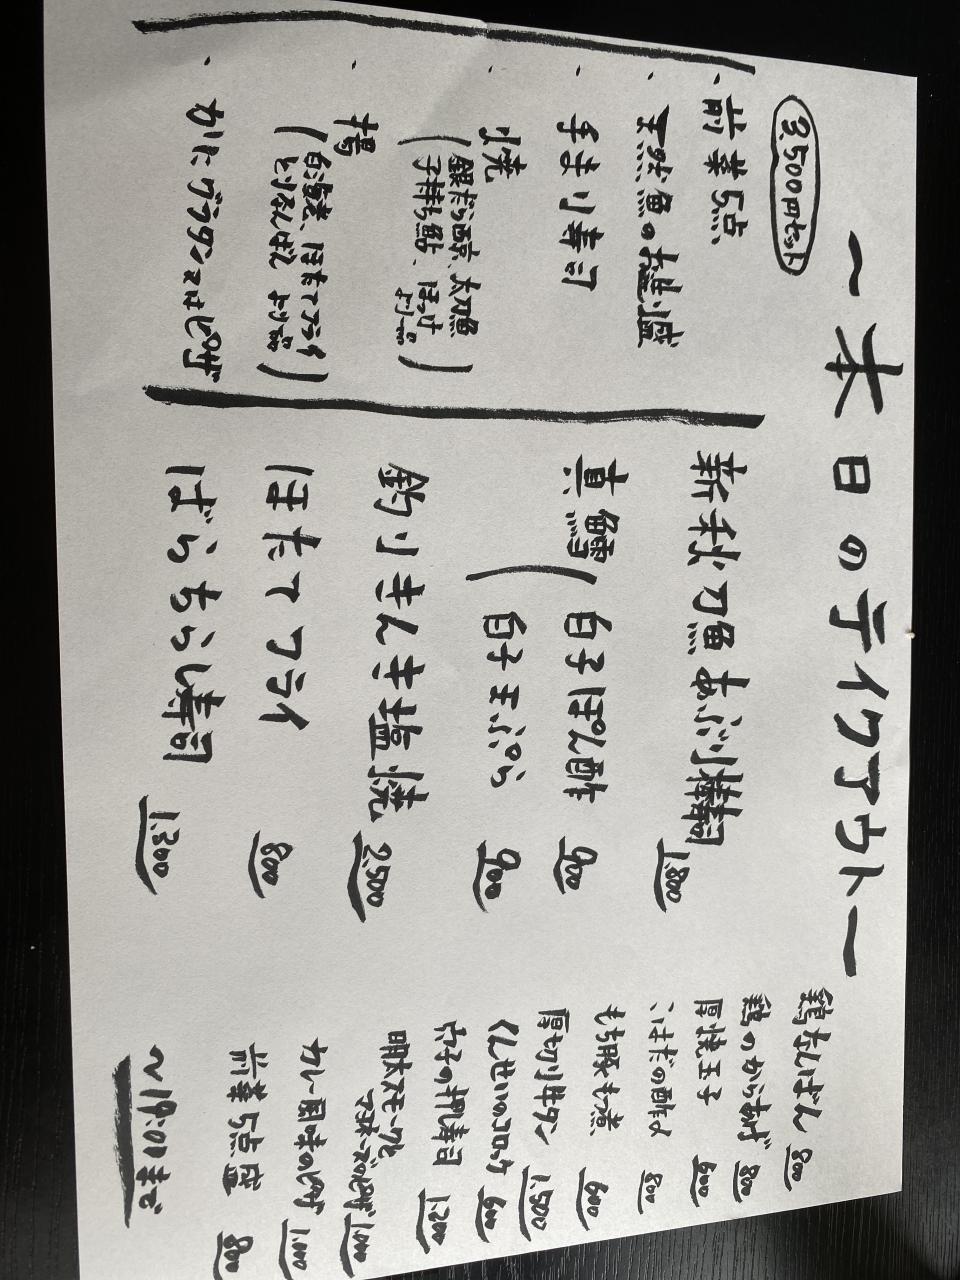 一本日のテイクアウト一
3,500円セット
・前菜5点
・天然魚のお造り盛
・手まり寿司
・焼
(銀だら西京、太刀魚
子持ち鮎、ほっけ
より一品)
・揚
(白海老、ほたてフライ
とりなんばん より一品)
・かにグラタン又はピザ
新秋刀魚あぶり棒寿司 1.800
真鱈(白子ぽん酢 900
白子天ぷら 900
釣りきんき塩焼 2.500
ほたてフライ 800
ばらちらし寿司 1.300
鶏なんばん 800
鶏のからあげ 800
厚焼玉子 600
こはだの酢〆 800
もち豚もつ煮 600
厚切り牛タン 1.500
くんせいのコロッケ 600
穴子の押し寿司 1.200
明太スモークと
マヨネーズのピザ 1.000
カレー風味のピザ 1.000
前菜5点盛 800
〜19:01まで